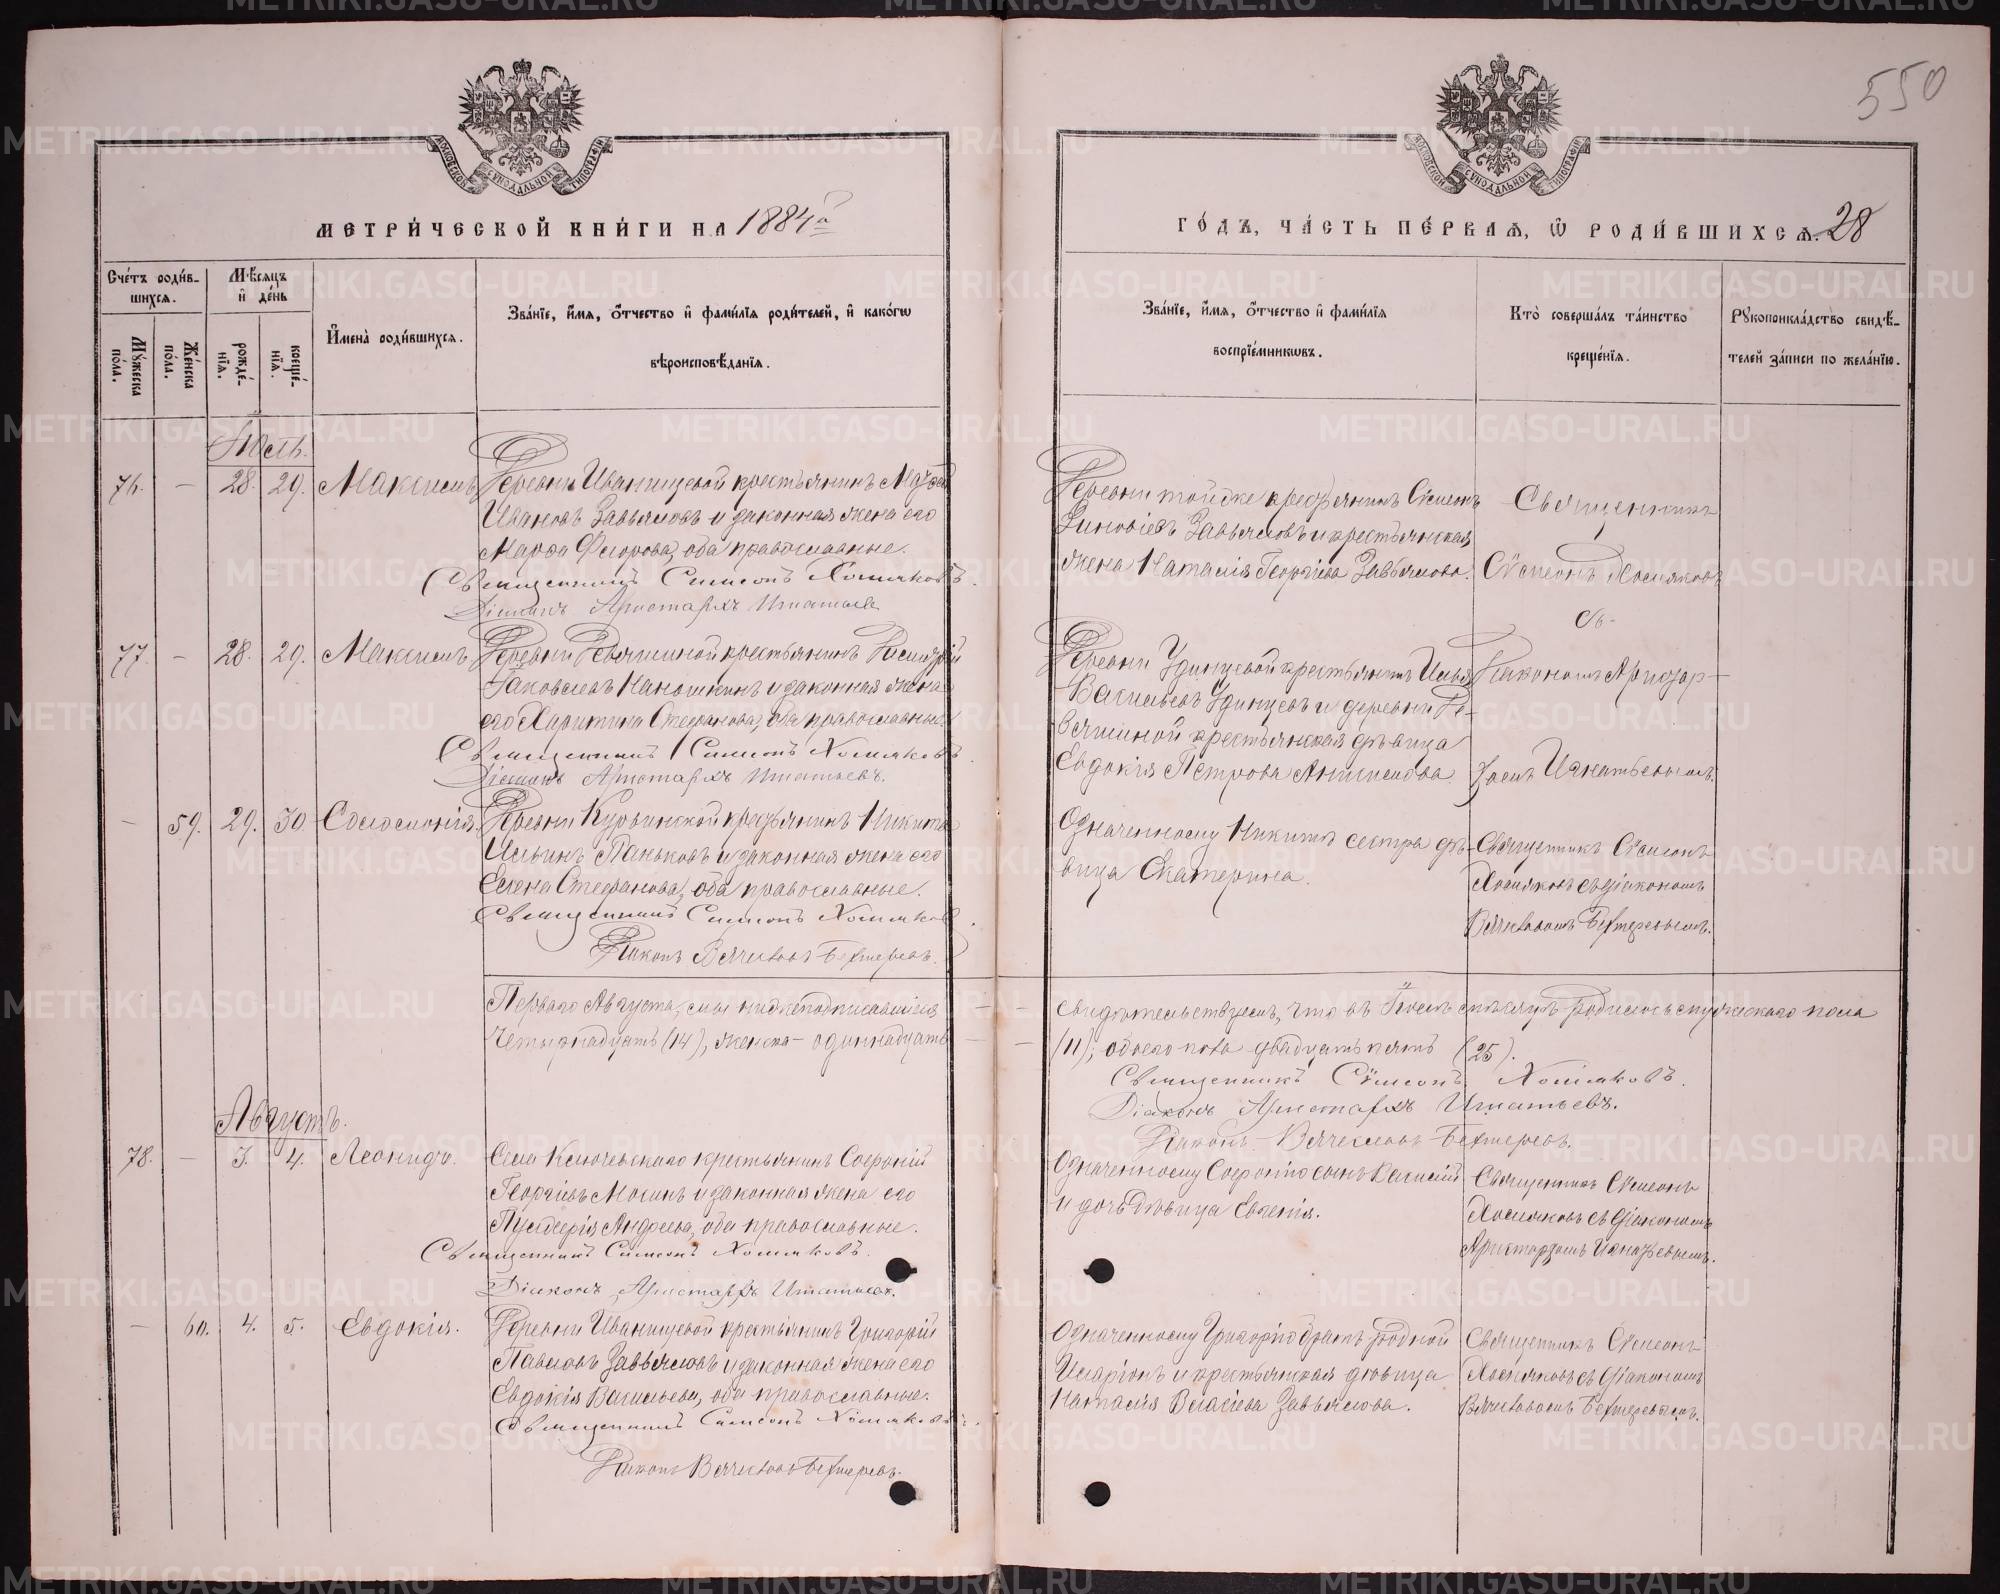 550
МОСКОВСКОЙ СѴНОДАЛЬНОЙ ТИПОГРАФІИ
МОСКОВСКОЙ СѴНОДАЛЬНОЙ ТИПОГРАФІИ
МЕТРИ́ЧЕСКОЙ КНИ́ГИ НА 1884й
ГО́ДЪ, ЧА́СТЬ ПЕ́РВАЯ, Ѡ РОДИ́ВШИХСЯ. 28
Сче́тъ роди́в-
шихся.
Мѣ́сяцъ
и де́нь
Мꙋ́жеска
по́ла.
Же́нска
по́ла.
рожде́-
нїя.
креще́-
нїя.
Имена̀ роди́вшихся.
Зва́нїе, и́мя, о́тчество и фами́лїя роди́телей, и како́гѡ
вѣроисповѣ́данїя.
Зва́нїе, и́мя, о́тчество и фами́лїя
воспрїе́мникѡвъ.
Кто̀ соверша́лъ та́инство
креще́нїя.
Рꙋкоприкла́дство свидѣ́-
телей за́писи по жела́нїю.
Іюль.
76. — 28. 29. Максимъ
Деревни Иванищевой крестьянинъ
Ивановъ Завьяловъ и законная жена его
Марфа Федорова, оба православные.
Священникъ Симеонъ Хомяковъ.
Діаконъ Аристархъ Игнатьевъ
Деревни крестьянинъ Симеонъ
Зиновіевъ Завьяловъ и крестьянская
жена Наталія Георгіева Завьялова.
Священникъ
Симеонъ Хомяковъ
съ
77. — 28. 29. Максимъ
Деревни крестьянинъ
Іаковлевъ и законная жена
его Харитина Стефанова, оба православные
Священникъ Симеонъ Хомяковъ
Діаконъ Аристархъ Игнатьевъ.
Деревни Удинцевой крестьянинъ Илья
Васильевъ Удинцевъ и деревни Ре-
вячиной крестьянская дѣвица
Евдокія Петрова
Діакономъ Аристар-
хомъ Игнатьевымъ.
— 59. 29. 30. Соломонія.
Деревни крестьянинъ Никита
Ильинъ Паньковъ и законная жена его
Елена Стефанова, оба православные.
Священникъ Симеонъ Хомяковъ.
Діаконъ Вячеславъ Бехтеревъ.
Означенному Никитѣ сестра дѣ-
вица Екатерина.
Священникъ Симеонъ
Хомяковъ съ діакономъ
Вячеславомъ Бехтеревымъ.
Перваго Августа, мы нижеподписавшіеся — — свидѣтельствуемъ, что въ Іюлѣ мѣсяцѣ родилось мужескаго пола
четырнадцать (14), женска — одиннадцать — — (11); обоего пола двадцать пять (25).
Священникъ Симеонъ Хомяковъ.
Діаконъ Аристархъ Игнатьевъ.
Діаконъ Вячеславъ Бехтеревъ.
Августъ.
78. — 3. 4. Леонидъ.
Села Ключевскаго крестьянинъ Софроній
Георгіевъ Мосинъ и законная жена его
Пульхерія Андреева, оба православные.
Священникъ Симеонъ Хомяковъ.
Діаконъ Аристархъ Игнатьевъ.
Означенному Софронію сынъ Василій
и дочь дѣвица Евгенія.
Священникъ Симеонъ
Хомяковъ съ діакономъ
Аристархомъ Игнатьевымъ.
— 60. 4. 5. Евдокія.
Деревни Иванищевой крестьянинъ Григорій
Павловъ Завьяловъ и законная жена его
Евдокія Васильева, оба православные.
Священникъ Симеонъ Хомяковъ.
Діаконъ Вячеславъ Бехтеревъ.
Означенному Григорію братъ родной
Иларіонъ и крестьянская дѣвица
Наталія Власіева Завьялова.
Священникъ Симеонъ
Хомяковъ съ діакономъ
Вячеславомъ Бехтеревымъ.
METRIKI.GASO-URAL.RU